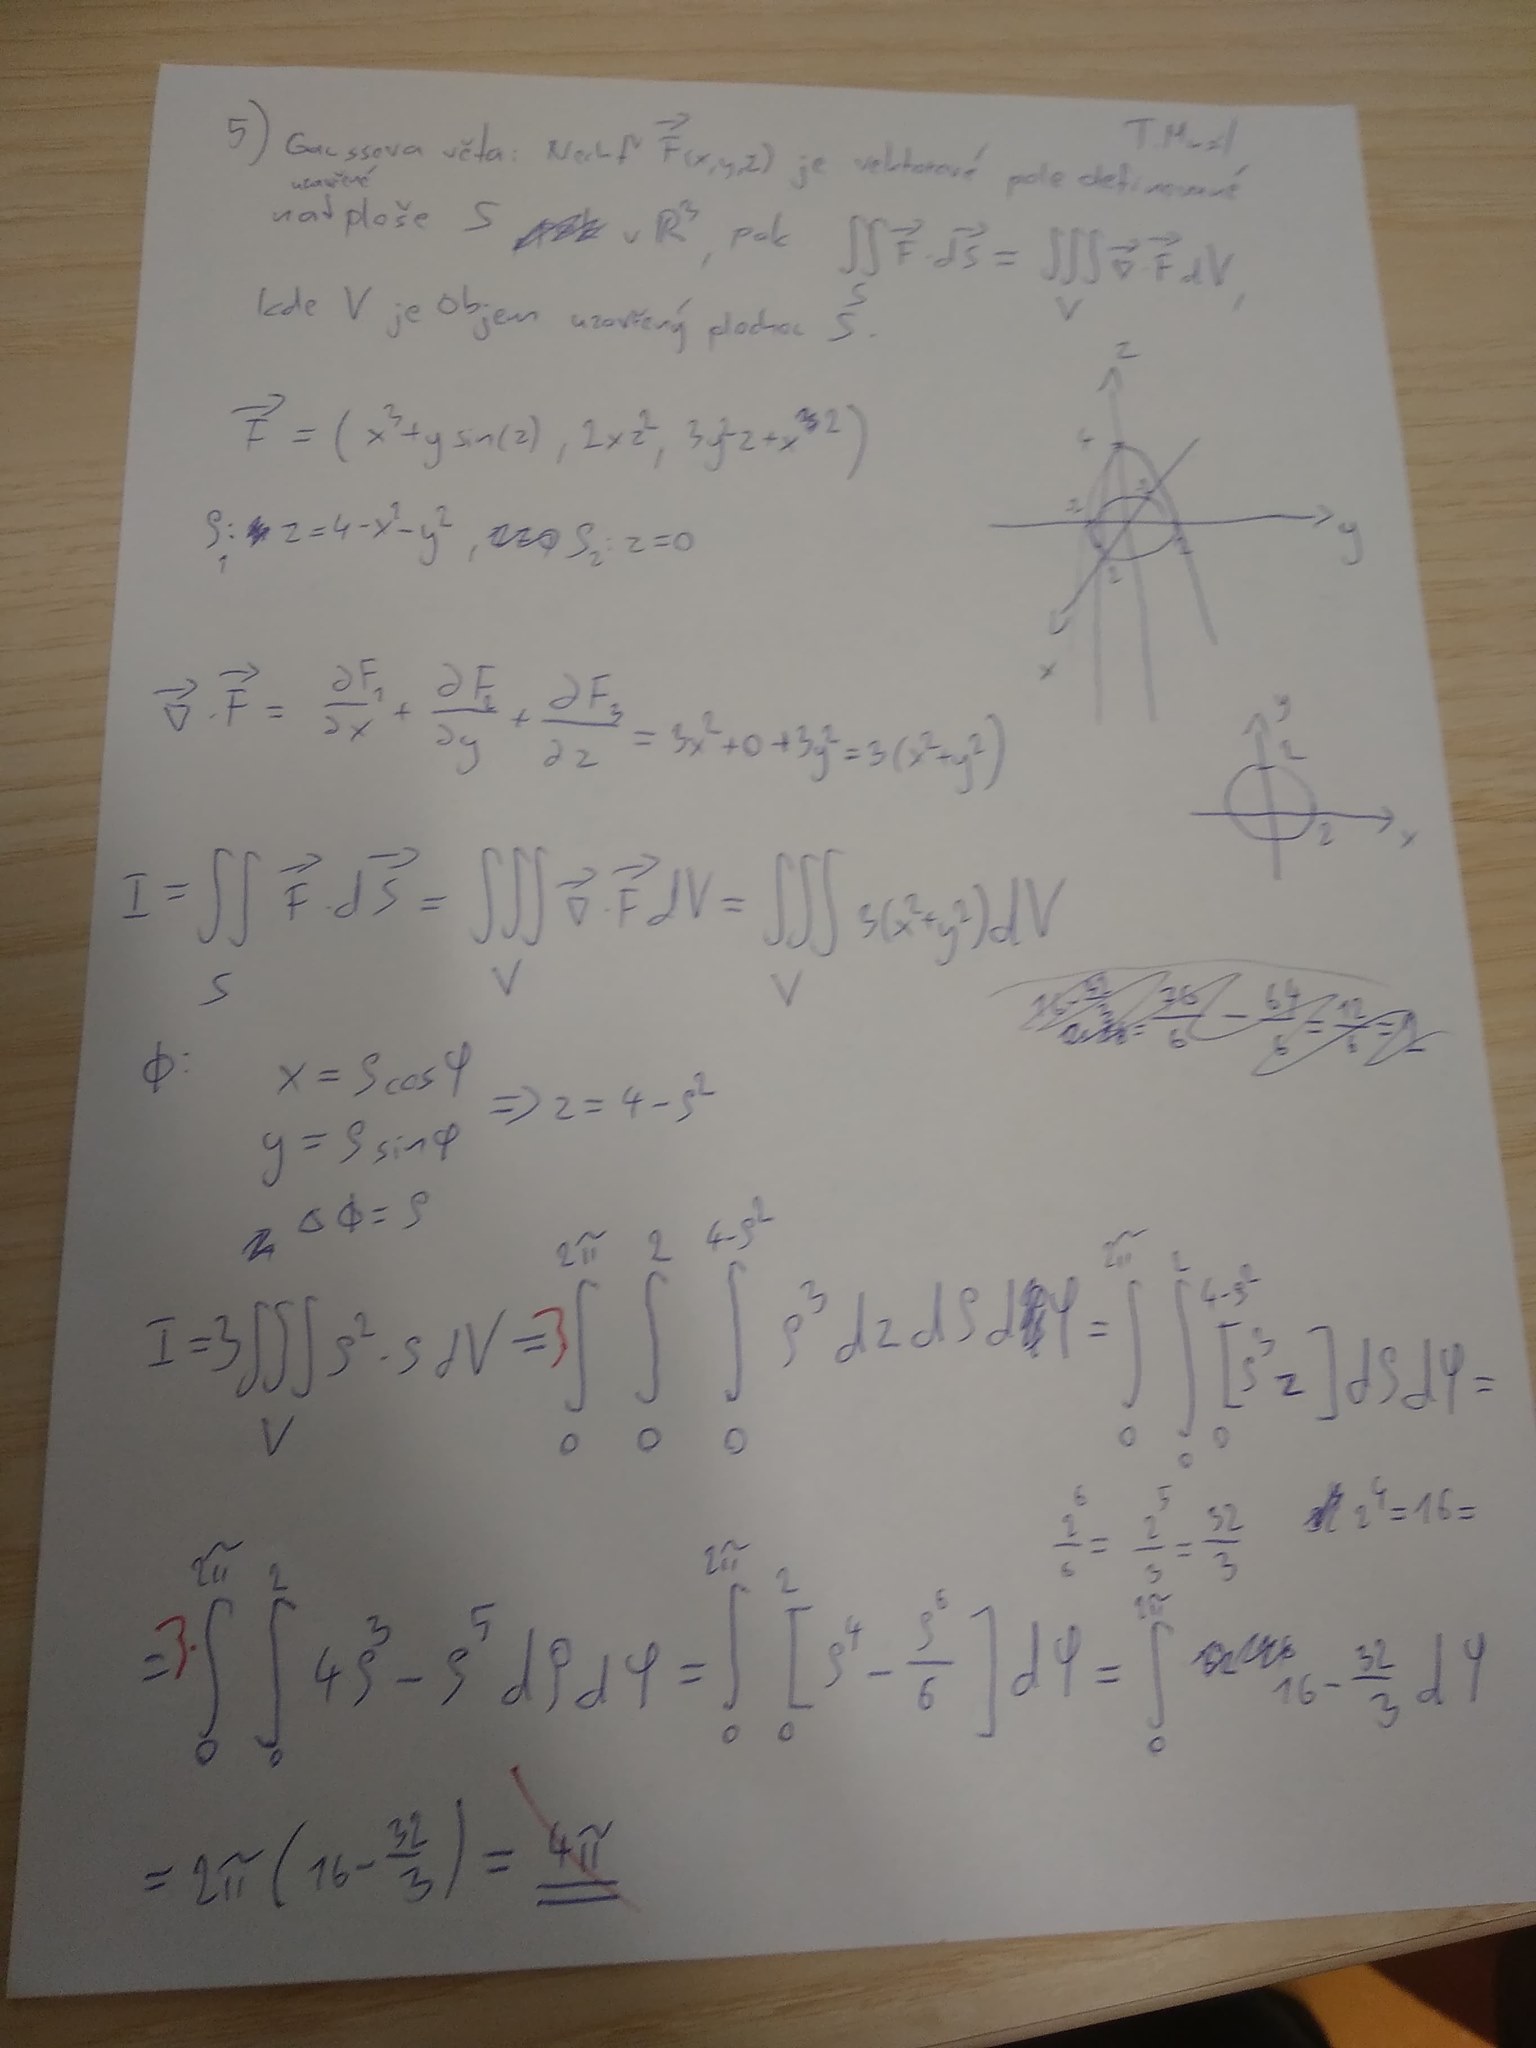 5) Gaussova věta: Nechť F⃗(x,y,z) je vektorové pole definované
uzavřené
nad ploše S v R³, pak ∬_S F⃗·dS⃗ = ∭_V ∇⃗·F⃗ dV,
kde V je objem uzavřený plochou S.
z
4
2
2
2
2
y
x
F⃗ = (x³+y sin(z), 2xz², 3y²z+x²)
S₁: z=4-x²-y², S₂: z=0
∇⃗·F⃗ = ∂F₁/∂x + ∂F₂/∂y + ∂F₃/∂z = 3x²+0+3y² = 3(x²+y²)
y
2
2
x
I = ∬_S F⃗·dS⃗ = ∭_V ∇⃗·F⃗ dV = ∭_V 3(x²+y²)dV
ϕ: x = ρ cosφ
y = ρ sinφ
=> z = 4-ρ²
Δϕ = ρ
I = 3∭_V ρ²·ρ dV = 3 ∫_0^{2π} ∫_0^2 ∫_0^{4-ρ²} ρ³ dz dρ dφ = ∫_0^{2π} ∫_0^2 [ρ³z]_0^{4-ρ²} dρ dφ =
2⁶/6 = 2⁵/3 = 32/3
2⁴=16=
= 3· ∫_0^{2π} ∫_0^2 4ρ³-ρ⁵ dρ dφ = ∫_0^{2π} [ρ⁴ - ρ⁶/6]_0^2 dφ = ∫_0^{2π} 16 - 32/3 dφ
= 2π(16 - 32/3) = 4π